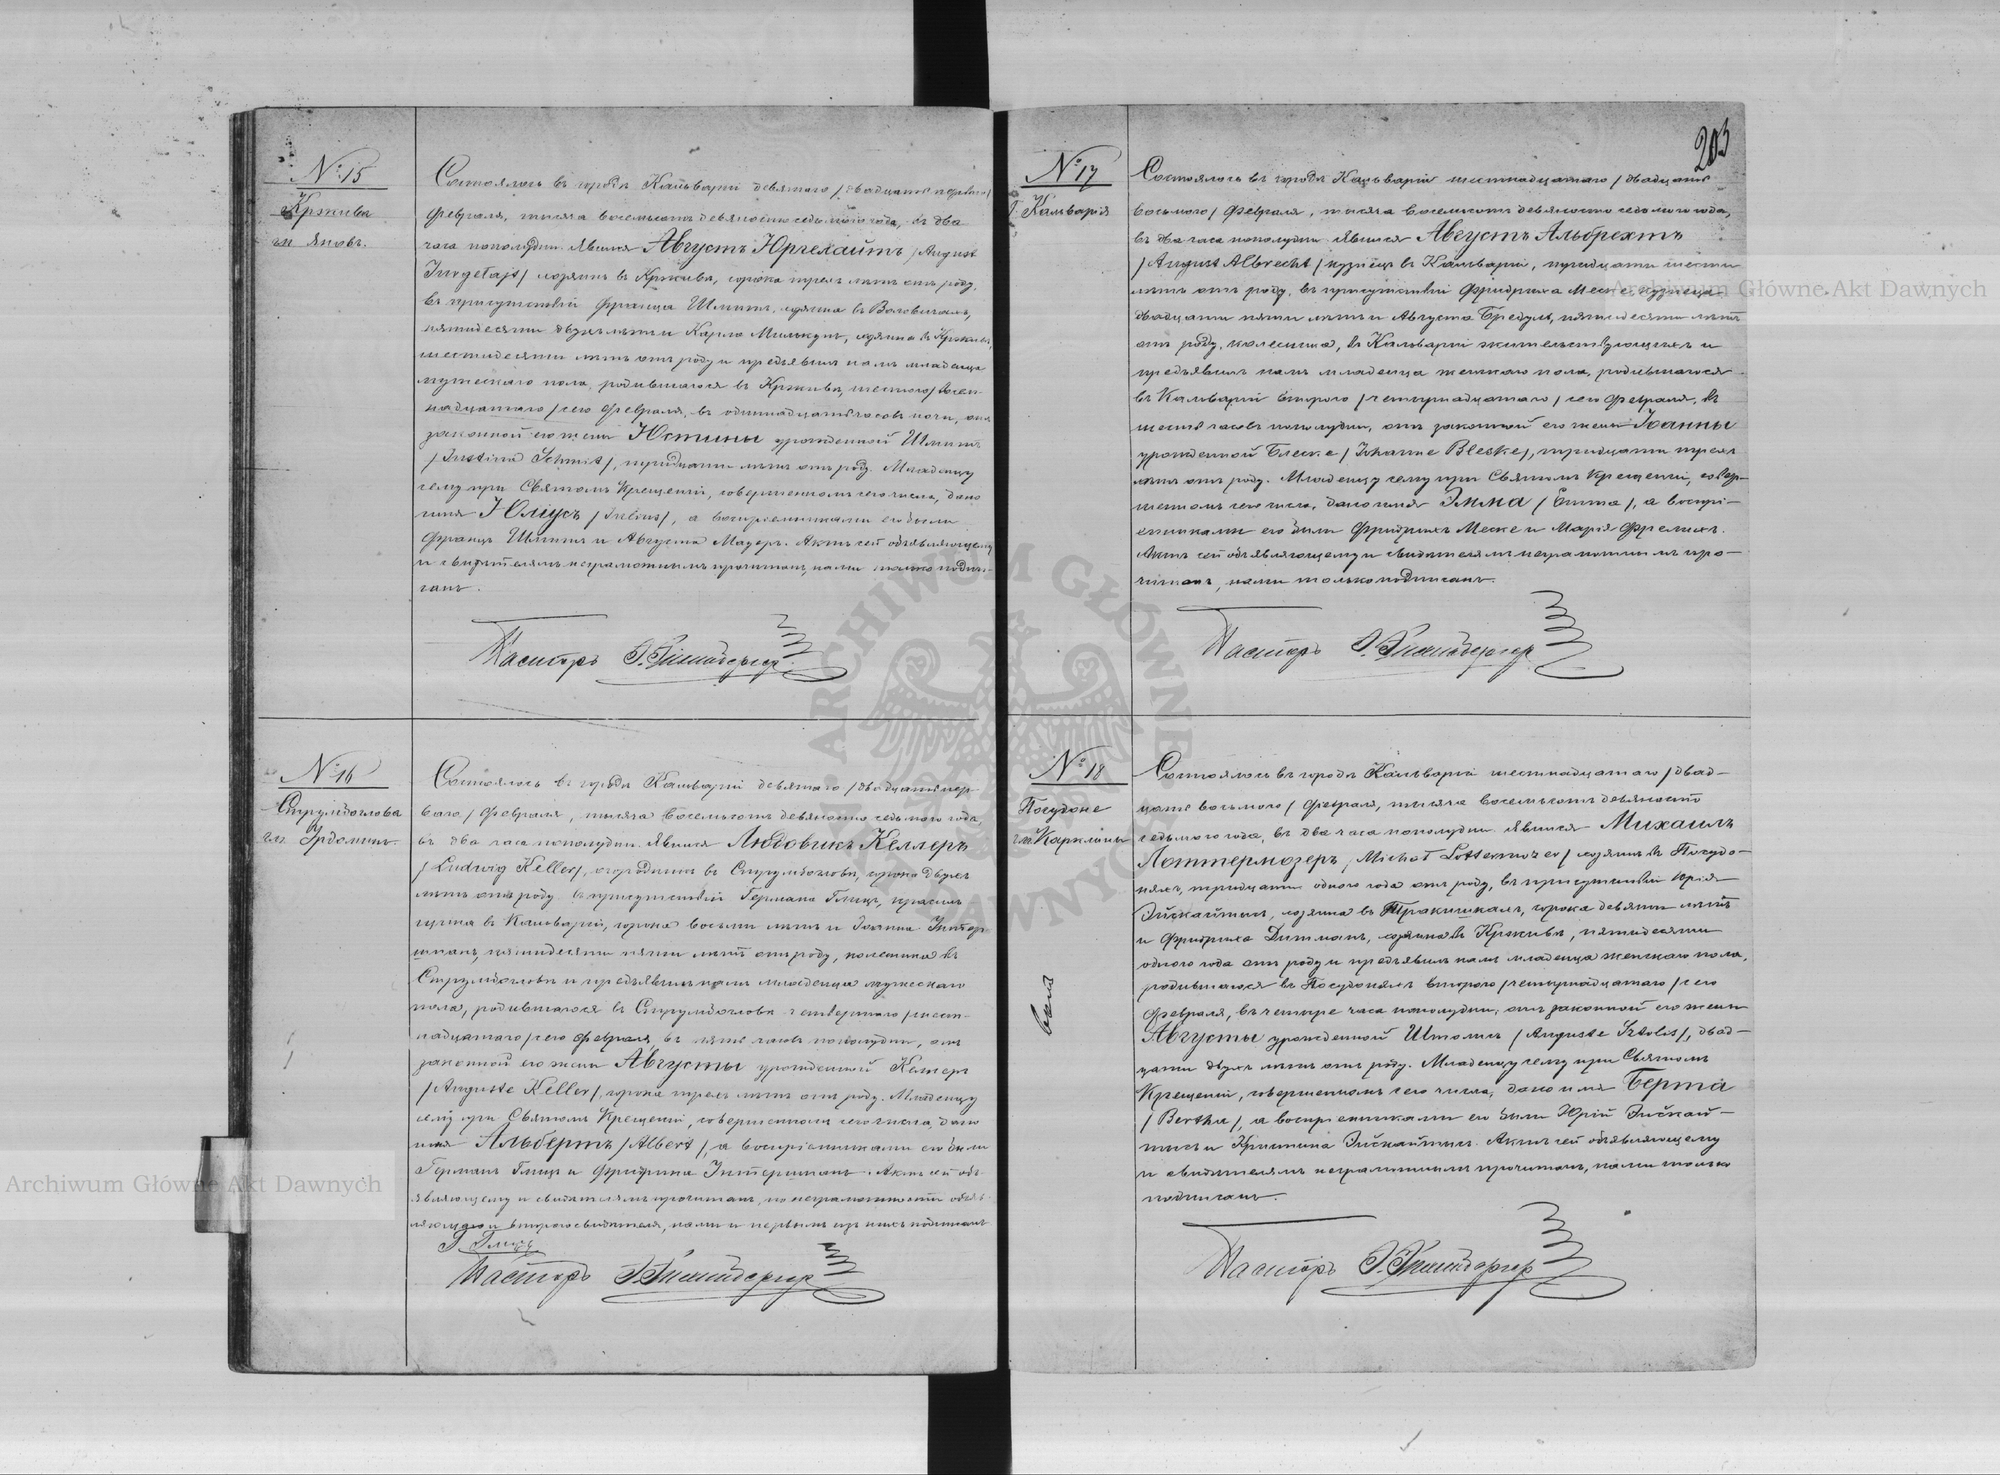 № 15
Кржива
гм. Яновъ.
Состоялось въ городѣ Кальваріи девятаго /двадцать перваго/
февраля, тысяча восемьсотъ девяносто седьмого года, въ два
часа пополудни. Явился Августъ Юргелайтъ /August
Jurgelajt/ хозяинъ въ Крживѣ, сорока трехъ лѣтъ отъ роду,
въ присутствіи Франца Шмита, хозяина въ
пятидесяти двухъ лѣтъ и Карла хозяина въ Крживѣ,
шестидесяти лѣтъ отъ роду и предъявилъ намъ младенца
мужескаго пола, родившагося въ Крживѣ, шестого /восем-
надцатаго/ сего февраля, въ одиннадцать часовъ ночи, отъ
законной его жены Юстины урожденной Шмитъ
/Justina Schmit/, тридцати лѣтъ отъ роду. Младенцу
сему при Святомъ Крещеніи, совершенномъ сего числа, дано
имя Юліусъ /Julius/, а воспріемниками его были
Францъ Шмитъ и Августа Мадеръ. Актъ сей объявляющему
и свидѣтелямъ неграмотнымъ прочитанъ, нами только подпи-
санъ.
Пасторъ
№ 16
Струмбоглова
гм.
Состоялось въ городѣ Кальваріи девятаго /двадцать пер-
ваго/ февраля, тысяча восемьсотъ девяносто седьмого года,
въ два часа пополудни. Явился Людовикъ Келлеръ
/Ludwig Keller/, огородникъ въ Струмбоглове, сорока двухъ
лѣтъ отъ роду въ присутствіи Германа Глицъ, красиль-
щика въ Кальваріи, сорока восьми лѣтъ и
пятидесяти пяти лѣтъ отъ роду, колесника въ
Струмбоглове и предъявилъ намъ младенца мужескаго
пола, родившагося въ Струмбоглове четвертаго /шест-
надцатаго/ сего февраля, въ пять часовъ пополудни, отъ
законной его жены Августы урожденной Келлеръ
/Auguste Keller/, сорока трехъ лѣтъ отъ роду. Младенцу
сему при Святомъ Крещеніи, совершенномъ сего числа, дано
имя Альбертъ /Albert/, а воспріемниками его были
Германъ Глицъ и Фридрика Интерманъ. Актъ сей объ-
являющему и свидѣтелямъ прочитанъ, по неграмотности объяв-
ляющаго и второго свидѣтеля, нами и первымъ изъ нихъ подписанъ
Г. Глицъ
Пасторъ
203
№ 17
Кальварія
Состоялось въ городѣ Кальваріи шестнадцатаго /двадцать
восьмого/ февраля, тысяча восемьсотъ девяносто седьмого года,
въ два часа пополудни. Явился Августъ Альбрехтъ
/August Albrecht/ кузнецъ въ Кальваріи, тридцати шести
лѣтъ отъ роду, въ присутствіи Фридриха Меске кузнеца
двадцати пяти лѣтъ и Августа пятидесяти лѣтъ
отъ роду, колесника, въ Кальваріи жительствующихъ и
предъявилъ намъ младенца женскаго пола, родившагося
въ Кальваріи второго /четырнадцатаго/ сего февраля, въ
шесть часовъ пополудни, отъ законной его жены Іоанны
урожденной Блеске /Johanne Bleske/, тридцати трехъ
лѣтъ отъ роду. Младенцу сему при Святомъ Крещеніи, совер-
шенномъ сего числа, дано имя Эмма /Emma/, а воспрі-
емниками его были Фридрихъ Меске и Марія Фрелихъ.
Актъ сей объявляющему и свидѣтелямъ неграмотнымъ про-
читанъ, нами только подписанъ.
Пасторъ
№ 18
Посудоне
гм. Кармины
Состоялось въ городѣ Кальваріи шестнадцатаго /двад-
цать восьмого/ февраля, тысяча восемьсотъ девяносто
седьмого года, въ два часа пополудни. Явился Михаилъ
Лоттермозеръ /Michał Lottermozer/ хозяинъ въ Посудо-
няхъ, тридцати одного года отъ роду, въ присутствіи Юрія
хозяина въ сорока девяти лѣтъ
и Фридриха Дитманъ, хозяина въ Крживѣ, пятидесяти
одного года отъ роду и предъявилъ намъ младенца женскаго пола,
родившагося въ Посудоняхъ второго /четырнадцатаго/ сего
февраля, въ четыре часа пополудни, отъ законной его жены
Августы урожденной Штолисъ /Auguste Sztolis/, двад-
цати двухъ лѣтъ отъ роду. Младенцу сему при Святомъ
Крещеніи, совершенномъ сего числа, дано имя Берта
/Bertha/, а воспріемниками его были Юрій
и Христина Актъ сей объявляющему
и свидѣтелямъ неграмотнымъ прочитанъ, нами только
подписанъ.
Пасторъ
Archiwum Główne Akt Dawnych
Archiwum Główne Akt Dawnych
ARCHIWUM GŁÓWNE AKT DAWNYCH